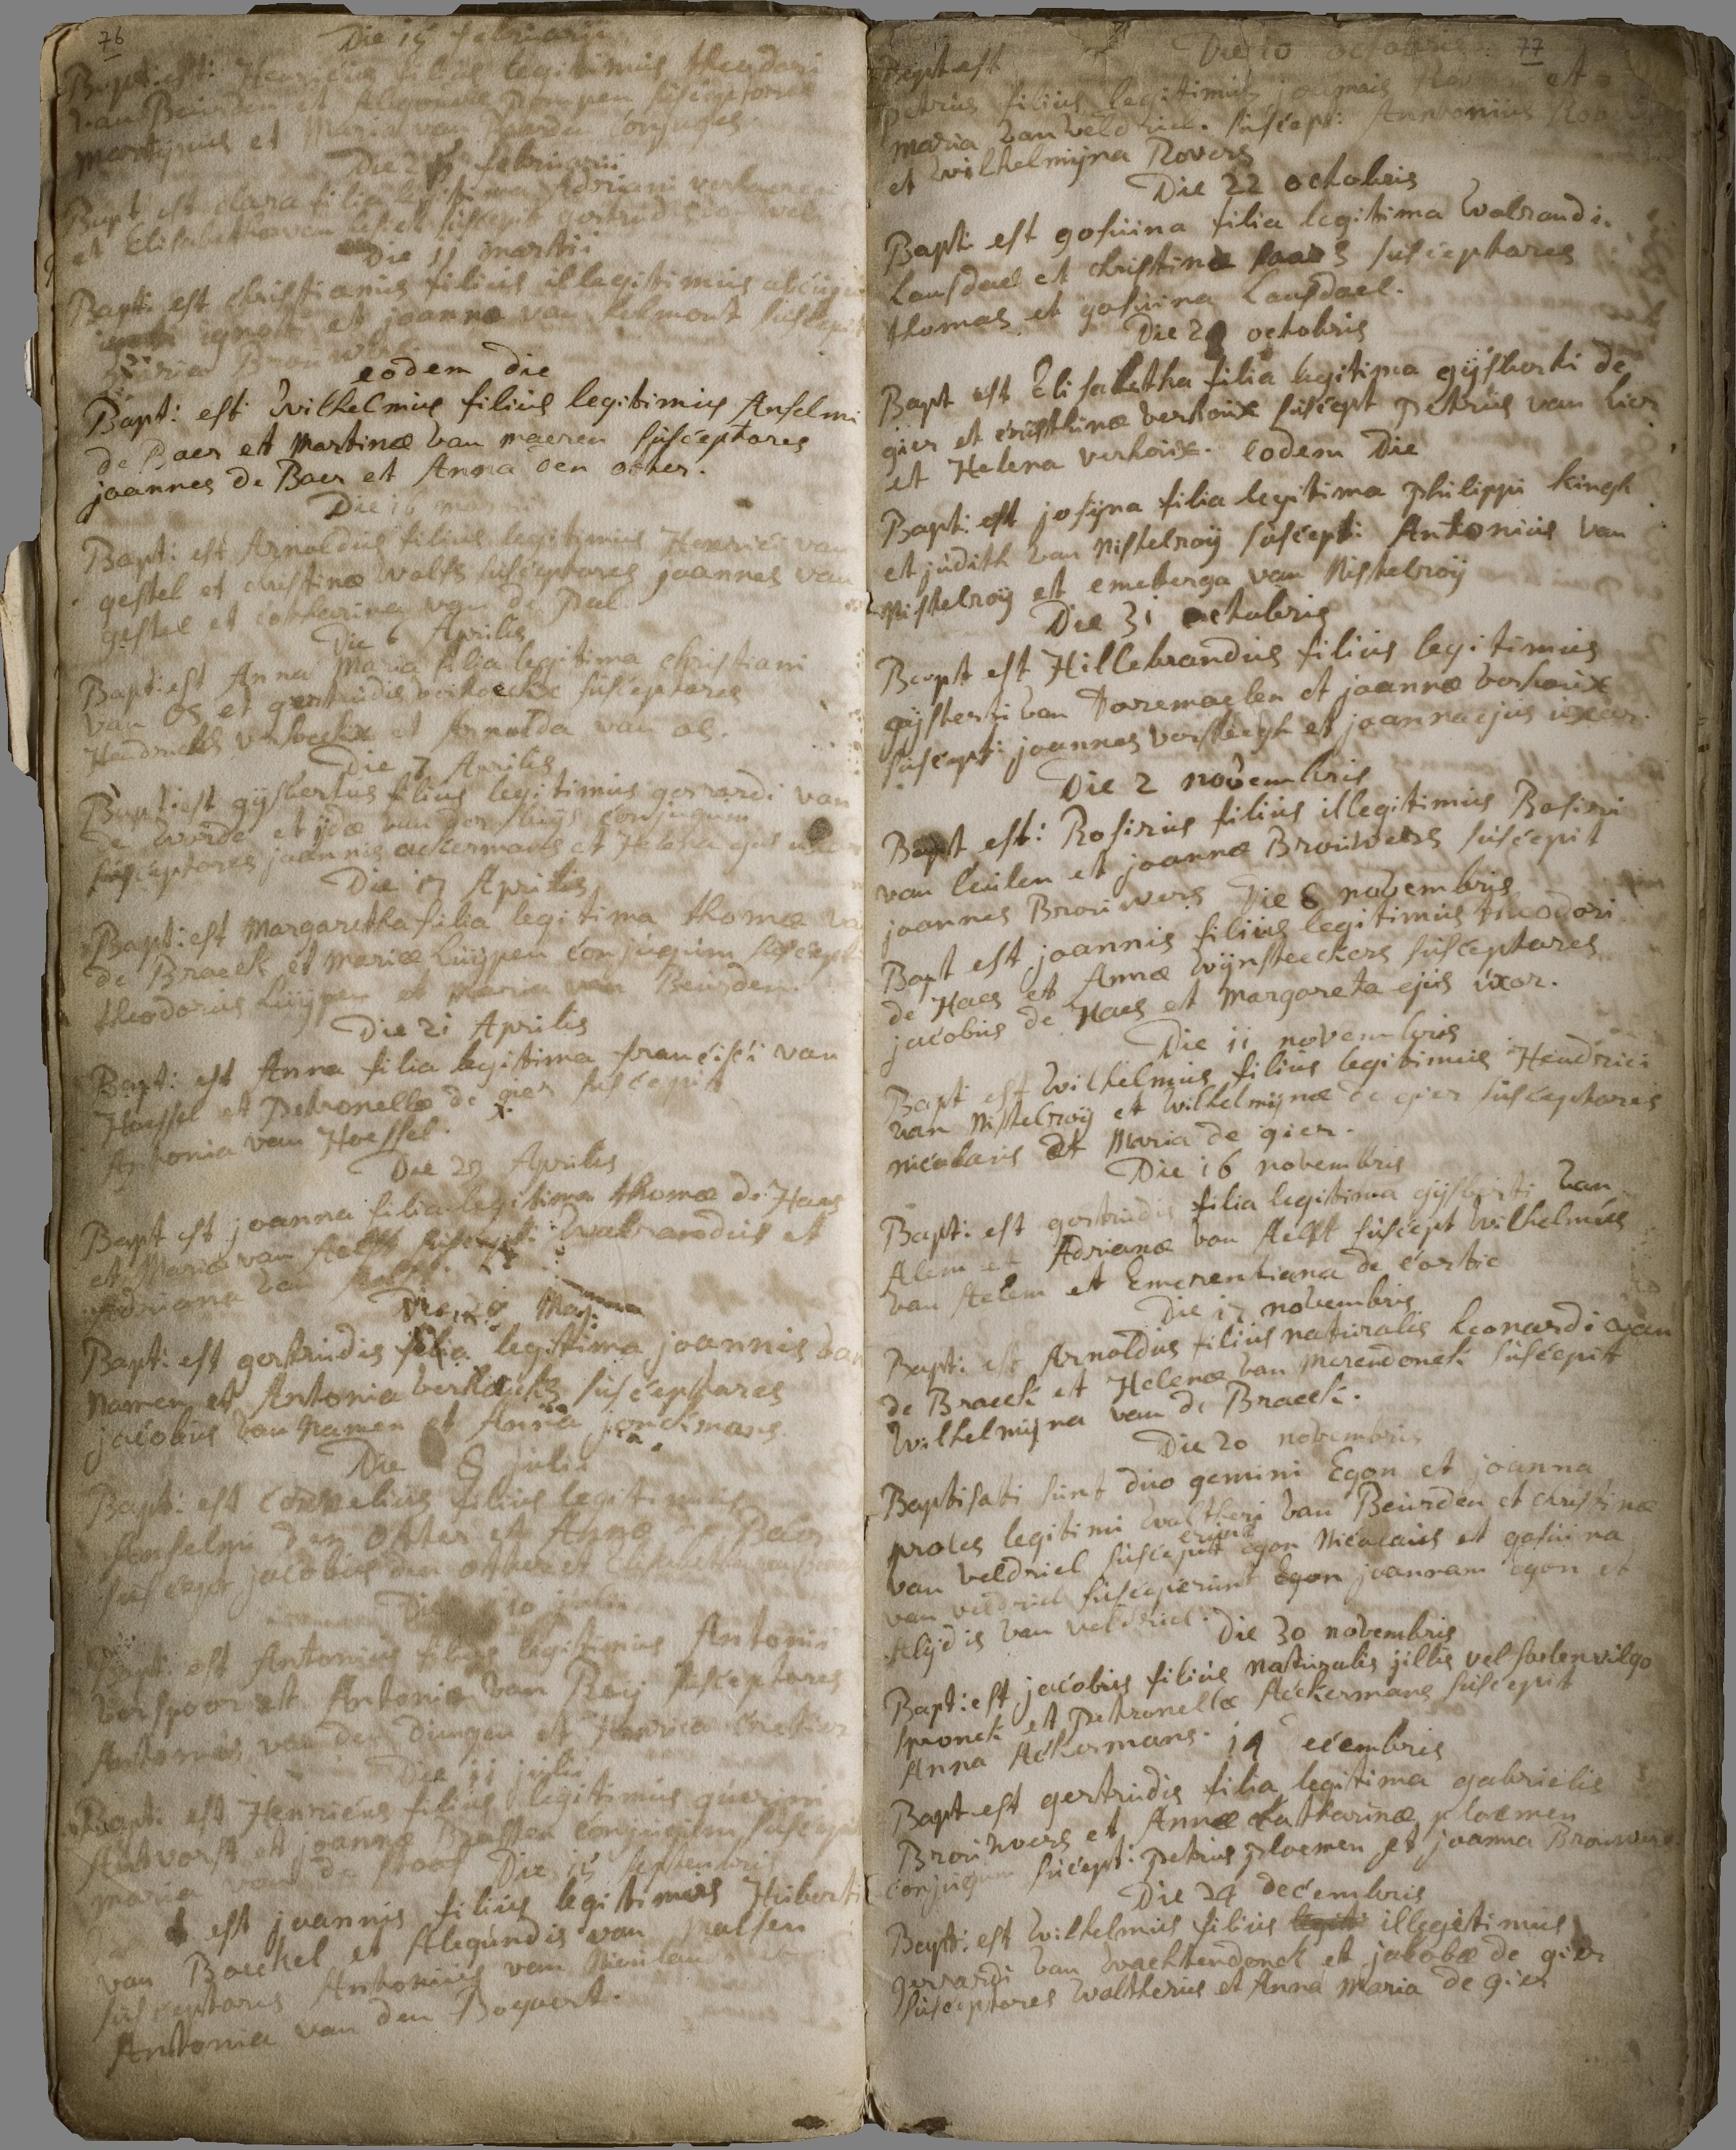 76
Die 15 februarii
Bapt: est: Henricus filius legitimus theodori
van Beurden et Aligondis Pompen susceptores
Martinus et Maria van conjuges.
Die februarii
Bapt est clara filia legitima Adriani
et Elisabetha van suscepit gertrudis van
Die 11 martii
Bapti est christianus filius illegitimus
ignoti et joannæ van helmont suscepit
eodem die
Bapt: est wilhelmus filius legitimus Anselmi
de Baer et Martinæ van maeren susceptores
joannes de Baer et Anna den otter.
Die 16 martii
Bapt: est Arnoldus filius legitimus Henrici van
gestel et christinæ Wolfs susceptores joannes van
gestel et catharina van de Pal
Die 6 Aprilis
Bapt: est Anna Maria filia legitima christiani
van Os et gertrudis susceptores
Hendricus et Arnolda van os.
Die 7 Aprilis
Bapti est gysbertus filius legitimus gerrardi van
de worde et ydæ van der sluijs conjugum
susceptores joannis ackermans et Helena ejus uxor
Die 17 Aprilis
Bapti: est Margaretha filia legitima thomæ va
de Braeck et mariæ Luijpen conjugum suscept:
theodorus Luijpen et Maria van Beurden.
Die 21 Aprilis
Bapt: est Anna filia legitima francisci van
Hoessel et Petronellæ de gier suscepit
Antonia van Hoessel.
Die 29 Aprilis
Bapt est joanna filia legitima thomæ de Haes
et Mariæ van Aelst suscept: Walrandus et
Adriana van Aelst.
Die Maji
Bapt: est gertrudis filia legitima joannis van
Namen et Antonia susceptores
jacobus van Namen et Anna jonckmans.
Die 8 julii
Bapt: est Cornelius filius legitimus
Anselmi den Otter et Annæ de Baer
suscept jacobus den otter et Elisabetha
Die 10 julii
Bapt: est Antonius filius legitimus Antonii
verspoor et Antoniæ van Roij susceptores
Antonius van der Dungen et
Die 11 julii
Bapt: est Henricus filius legitimus quirini
Antvorst et joannæ conjugum suscepit
maria van de Die 15 septembris
t est joannis filius legitimus Huberti
van Boechel et Alegundis van
susceptores Antonius van
Antonia van den Bogaert.
77
Die 10 octobris
Bapt est
petrus filius legitimus et
maria van veldriel. suscept: Antonius
et Wilhelmijna Rovers
Die 22 octobris
Bapti est gosuina filia legitima Walrandi.
Lansdael et christinæ susceptores
thomas et gosuina Lansdael.
Die 29 octobris
Bapt est Elisabetha filia legitima gijsberti de
gier et cristhinæ verhoix suscept petrus van Lier
et Helena verhoix. eodem Die
Bapti: est josijna filia legitima philippi kingh
et judith van Nistelroij suscept: Antonius van
Nistelroij et emeberga van Nistelroij
Die 31 octobris
Bapt est Hillebrandus filius legitimus
gijsberti van Doremaelen et joannæ verhoix
suscept: joannes versteegh et joanna ejus uxor.
Die 2 novembris
Bapt est: Rosirus filius illegitimus Rosiri
van Ceulen et joannæ Brouwers suscepit
joannes Brouwers Die 8 novembris
Bapt est joannis filius legitimus theodori
de Haes et Annæ Wijnsteeckers susceptores
jacobus de Haes et Margareta ejus uxor.
Die 11 novembris
Bapt est Wilhelmus filius legitimus Hendrici
van Nistelroij et Wilhelmijnæ de gier susceptores
nicolaus et Maria de gier.
Die 16 novembris
Bapt: est gertrudis filia legitima gijsberti van
Alem et Adrianæ van Aelst suscept Wilhelmus
van Aelem et Emerentiana de cortie
Die 17 novembris
Bapt: est Arnoldus filius naturalis Leonardi van
de Braeck et Helenæ van Merendonck suscepit
Wilhelmijna van de Braeck.
Die 20 novembris
Baptisati sunt duo gemini Egon et joanna
proles legitimi Waltheri van Beurden et christinæ
van veldriel suscepit erunt egon Nicolaus et gosuina
van veldriel susceperunt Egon joannam Egon et
Alijdis van veldriel. Die 30 novembris
Bapt: est jacobus filius naturalis jillis vel vulgo
spronck et Petronellæ Ackermans suscepit
Anna Ackermans. 14 ecembris
Bapt est gertrudis filia legitima gabrielis
Brouwers et Annæ Catharinæ ploemen
conjugum suscept: petrus ploemen et joanna Brouwers
Die 24 decembris
Bapt: est Wilhelmus filius legiti illegitimus
gerrardi van Wachtendonck et jakobæ de gier
susceptores Waltherus et Anna Maria de gier